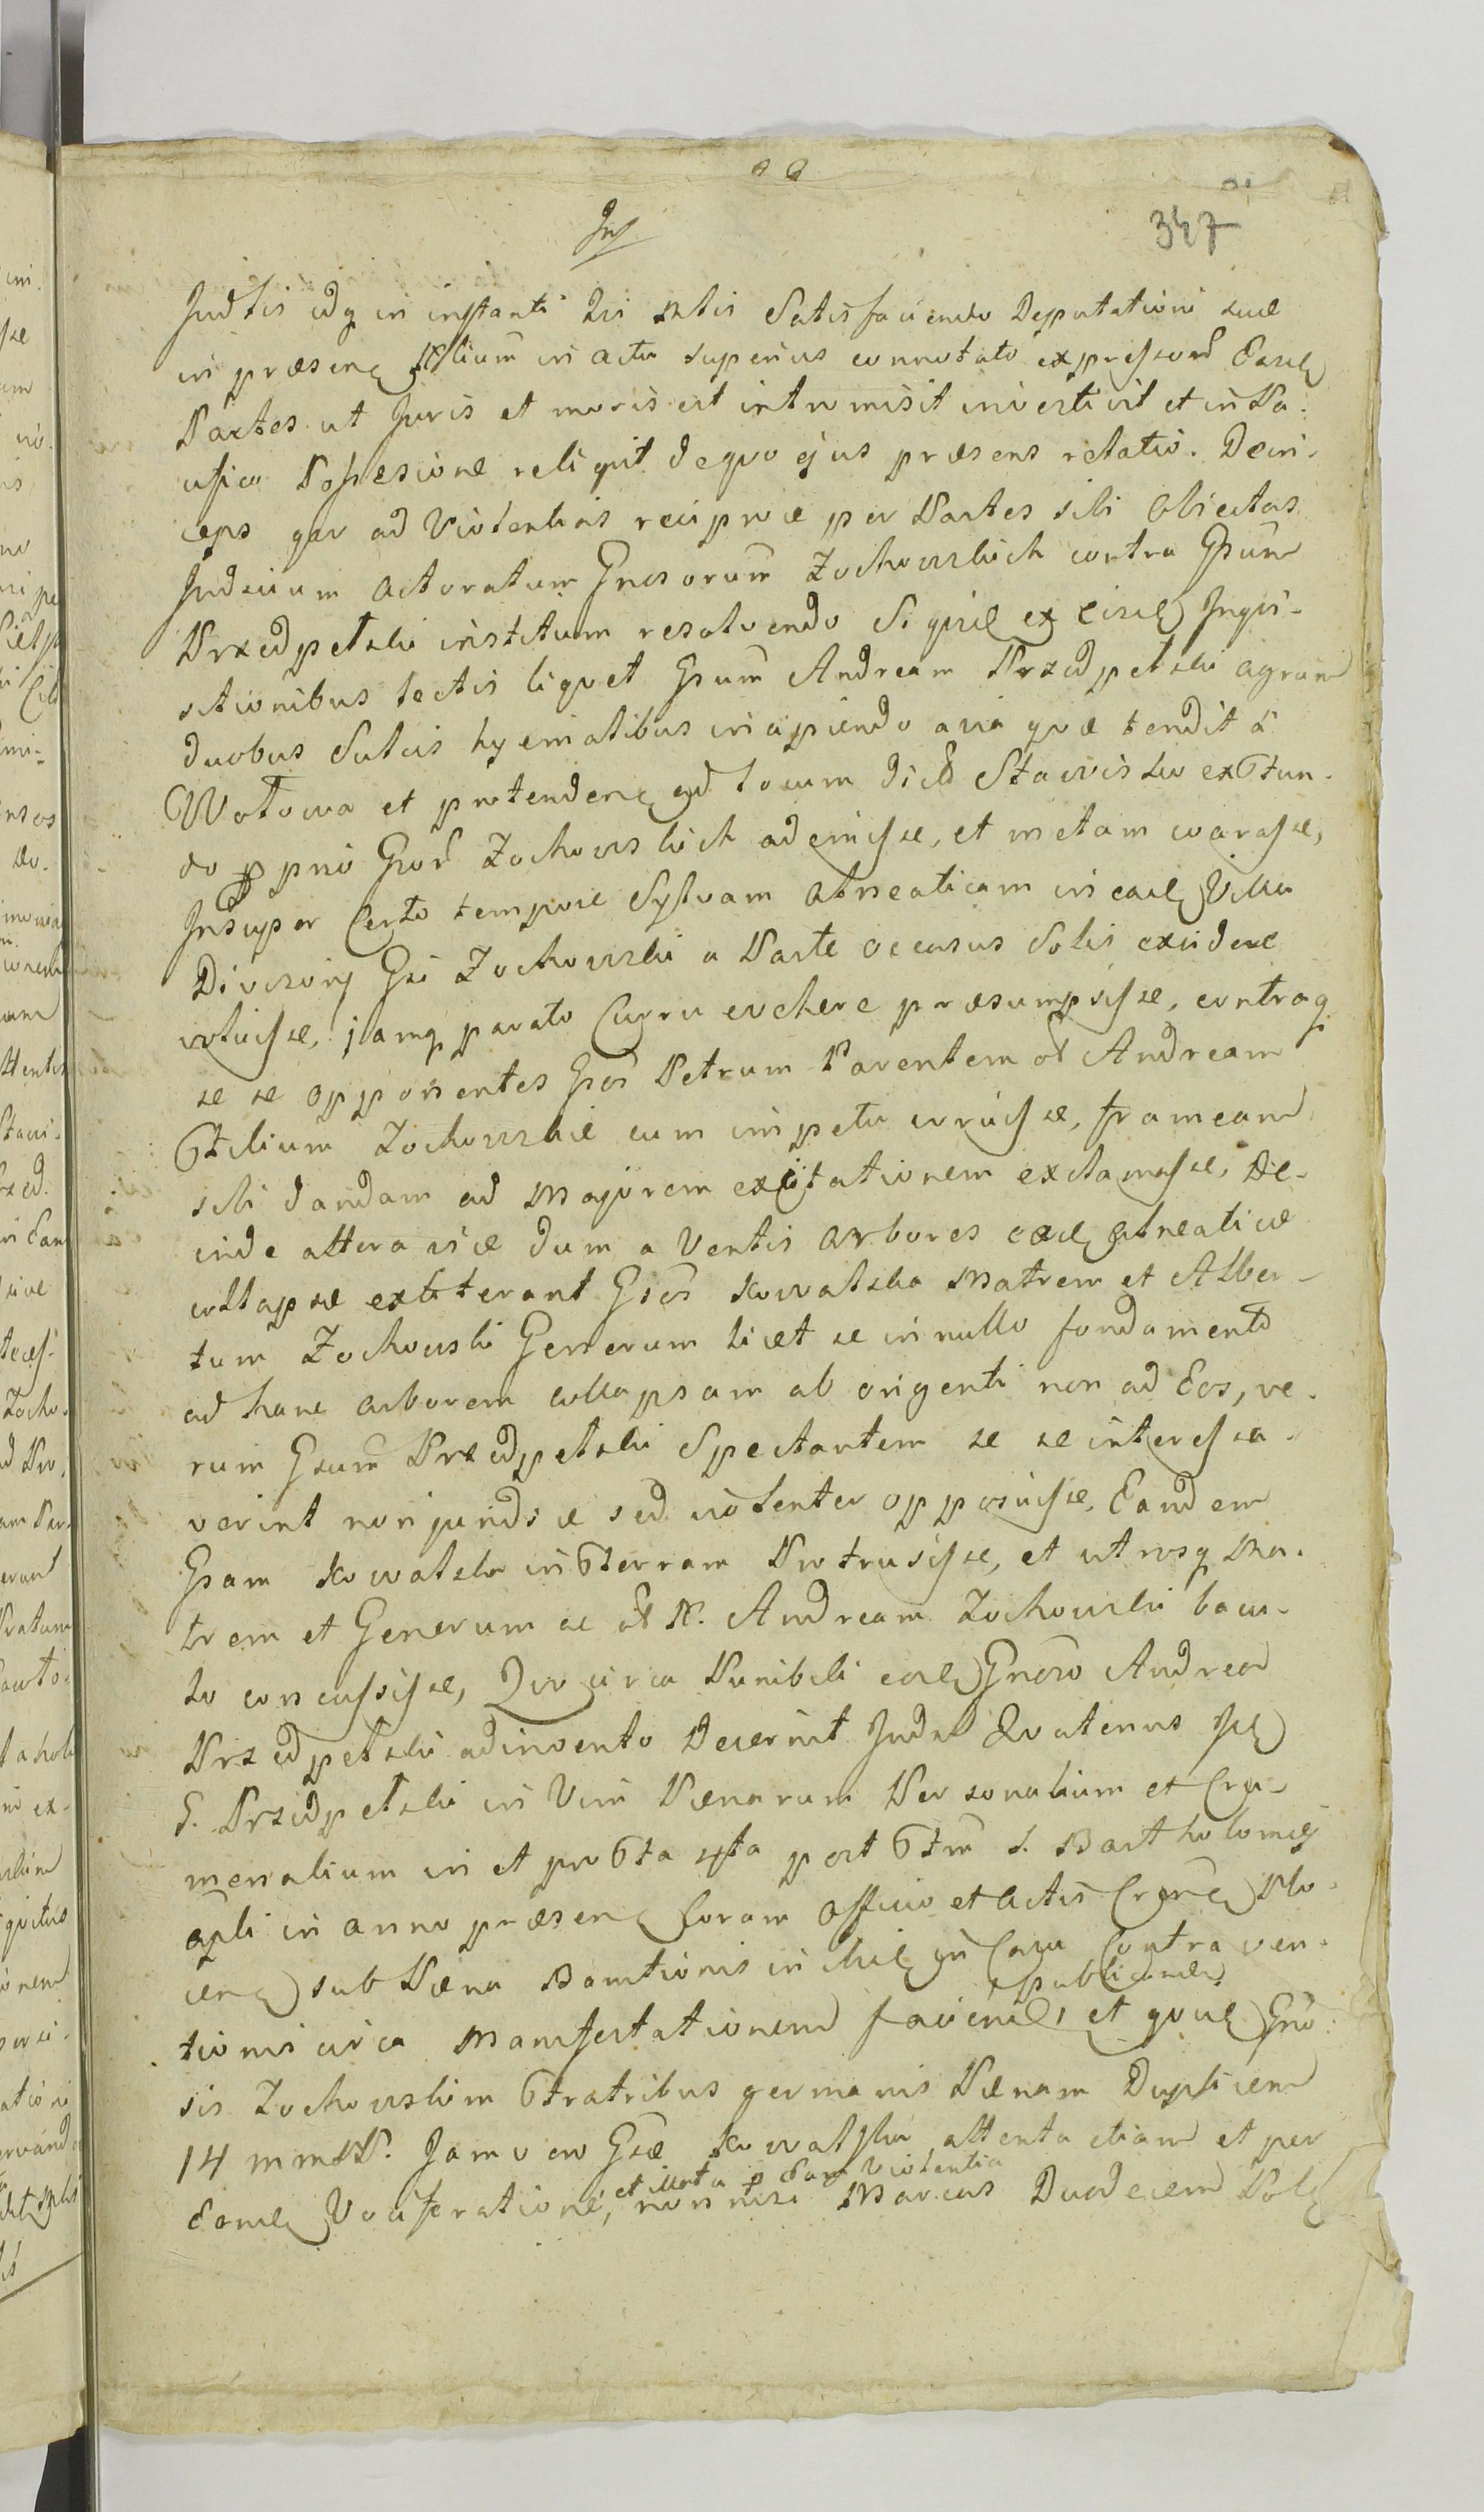 347
Judtis idq in instanti Dni Mtis Satisfaciendo Deputationi suae
in praesenq in actu superius connotato expressord Easd
Partes ut Juris et moris est intromisit investivit et in Pa-
cifica Possesione reliquit de quo ejus praesens relatio. Dein-
ceps qar ad Violentias reciproce per Partes sibi Obiectas
Judicium Actoratum Gnosorum Zochowskich contra Gsum
Przedpelski institum resolvendo Siquid ex eisd Inqui-
sitionibus lectis liquet Gsum Andream Przedpelski agrum
duobus Sulcis hyematibus incipiendo a via quae tendit a
Wolowa et protendenq ad locum dict Stawisko ex Fun-
do pprio Gsord Zochowskich ademisse, et metam coarasse,
Insuper Certo tempore Sylvam Alneaticam in ead Villa
Divisory Gsi Zochowski a Parte Occasus Solis excidere
voluisse, jamq parato Curru evehere praesumpsisse, contraq
se se opponentes Gsos Petrum Parentem et Andream
Filium Zochowskie cum impetu irruisse, frameam
sibi dandam ad Majorem excitationem exclamasse, De-
inde altera vice dum a Ventis Arbores eaed Alneaticae
collapsae extiterant Gsos Kowalska Matrem et Alber-
tum Zochowski Generum licet se in nullo fundamento
ad hanc arborem collapsam ab origenti non ad Eos, ve-
rum Gsum Przedpelski Spectantem se se interessa-
verint non juridice sed violenter opposuisse, Eandem
Gsam Kowalska in Terram Protrusisse, et utrosq Ma-
trem et Generum ac et N. Andream Zochowski bacu-
lo concussisse, Quo circa Punibili eod Gnoso Andrea
Przedpelski adinvento Decernit Judm Quatenus Id
G. Przedpelski in Vim Paenarum Personalium et Cri-
menalium in et pro Fta post Ftm S. Bartholomaei
apli in anno praesenq Coram Officio et Actis Crenq Plo-
cenq sub Paena Bannitionis in Casu Contraven-
tionis circa Manifestationem faciend, et publicand, et quid Gno-
sis Zochowskim Fratribus germanis Paenam Duplicem
14 mmPP. Jam vero Gsae Kowalska attenta etiam et per
Eamd Vociferatione, et illata p Eam Violentia non nisi Marcas Duodecem Polq